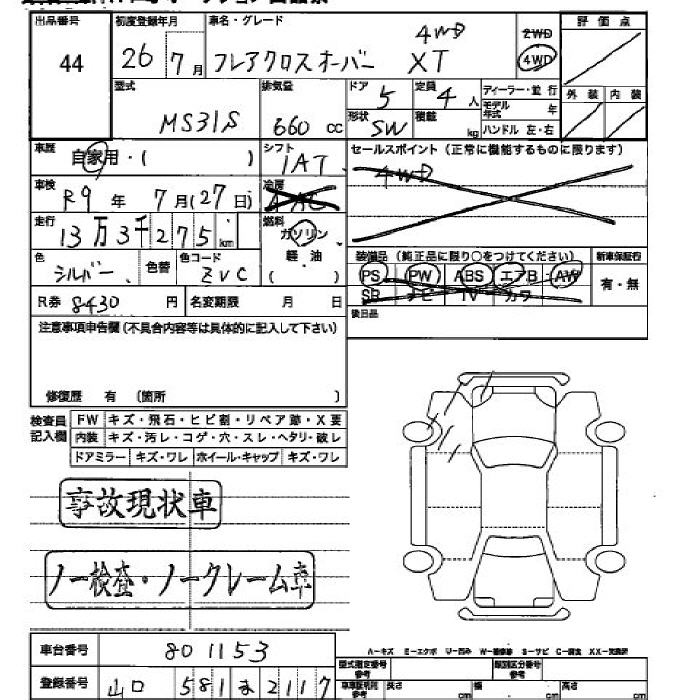 出品番号 初度登録年月 車名・グレード 評価点
44 26年 7月 フレアクロスオーバー 4WD XT 2WD 4WD
型式 排気量 ドア 定員 ディーラー・並行 外装 内装
MS31S 660cc 5 4人 モデル年式 年
形状 SW 積載 kg ハンドル 左・右
車歴 自家用・( ) シフト 1AT セールスポイント (正常に機能するものに限ります)
車検 R9年 7月(27日) 冷房 AAC 4WD
走行 13万3千275km 燃料 ガソリン
色 シルバー 色替 色コード ZVC 軽油 ( ) 装備品 (純正品に限り○をつけてください) 新車保証書
PS PW ABS エアB AW 有・無
R券 8430円 名変期限 月 日 SR ナビ TV カワ
後日品
注意事項申告欄 (不具合内容等は具体的に記入して下さい)
修復歴 有 (箇所 )
検査員記入欄 FW キズ・飛石・ヒビ割・リペア跡・X要
内装 キズ・汚レ・コゲ・穴・スレ・ヘタリ・破レ
ドアミラー キズ・ワレ ホイール・キャップ キズ・ワレ
事故現状車
ノー検査・ノークレーム車
A-キズ E-エクボ U-凹み W-補修跡 S-サビ C-腐食 XX-交換済
車台番号 801153
型式指定番号 参考 類別区分番号 参考
登録番号 山口 581 ま 2117
車車証明用 参考 長さ cm 幅 cm 高さ cm